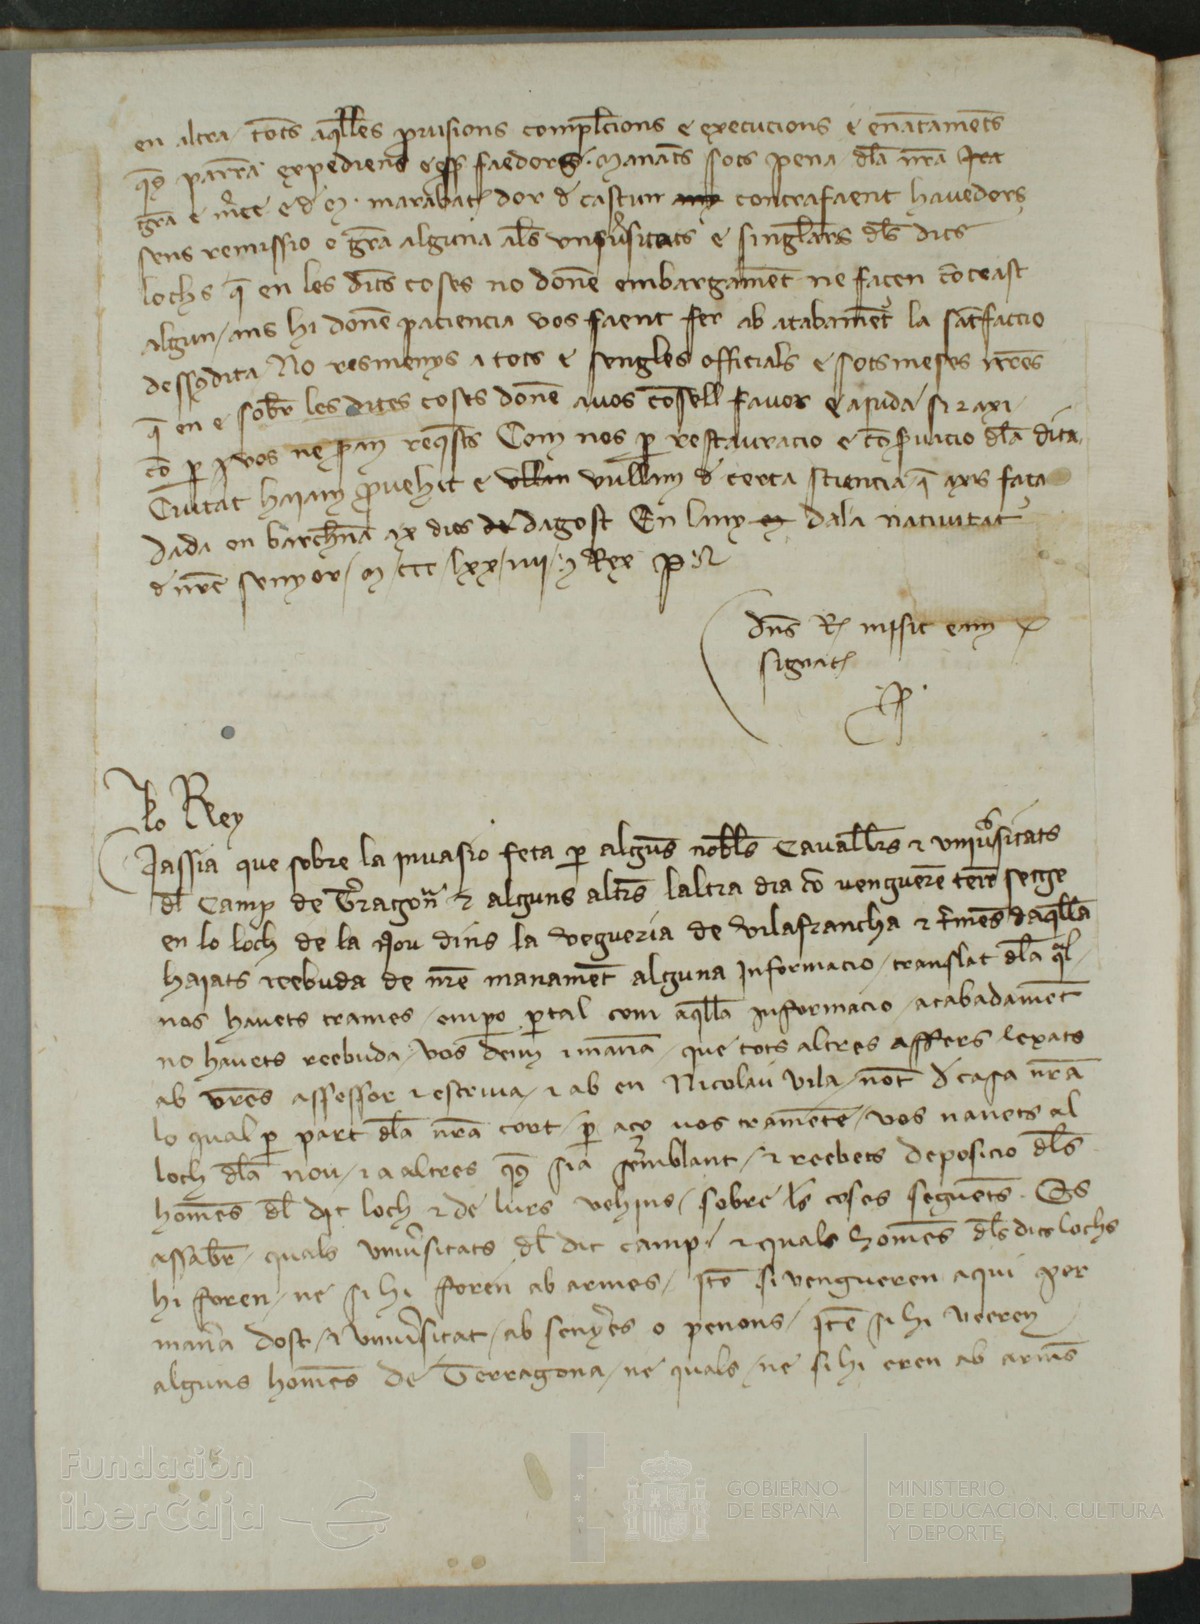 en altra tots aq̃lles prouisions compl̃cions e execucions e enãtamẽts
q̃s parra expediens e faedors manãts sots pena dl̃a nr̃a
gr̃a e mc̃e e d M marabat dor d̃ cascun contrafaent hauedors
sens remissio o gr̃a alguna als vniũsitats e singl̃ars dl̃s dits
lochs q̃ en les dits coses no donẽ embargamẽt ne facen cõtrast
algun ans hi donẽ paciencia vos faent fer ab acabamẽt la satffaccio
dessꝰdita No resmenys a tots e sengles officials e sotsmeses nr̃es
q̃ en e sobr̃ les dites coses donẽ a vos cõsell fauor e aiuda si e axi
cõ ꝑ vos ne sran req̃sts Com nos ꝑ restauracio e cõseruacio dl̃a dita
Ciutat haiam ꝓuehit e vullam d̃ certa sciencia q̃ axis faça
dada en barchñā ix dies dagost En lany dala natiuitat
d̃ nr̃e senyor M ccc lxx iiii Rex P
dñs R misit eam
signat
P
Lo Rey
Jassia que sobre la inuasio feta ꝑ algũs nobl̃s Cauall̃rs ⁊ vniũsitats
dl̃ Camp de Tr̃agoñ ⁊ alguns altr̃s laltra dia cõ venguerẽ tenẽ setge
en lo loch de la Nou dins la vegueria de vilafrancha ⁊ t̃mẽs daq̃lla
haiats reebuda de nr̃e manamẽt alguna informacio translat dl̃a q̃l
nos hauets trames empo ꝑtal com aq̃lla informacio acabadamẽt
no hauets reebuda vos deim ⁊ manã que tots altres affers lexats
ab vr̃es assessor ⁊ escriua ⁊ ab en Nicolau vila not̃ d̃ casa nr̃a
lo qual ꝑ part dl̃a nr̃a cort ꝑ aço uos trametẽ vos nanets al
loch dl̃a nou ⁊ a altres q̃s sia semblant ⁊ reebets deposicio dl̃s
homẽs dl̃ dit loch ⁊ de lurs vehins sobre l̃s coses seguẽts Es
assabr̃ quals vniũsitats dl̃ dit camp ⁊ quals homẽs dl̃s dits lochs
hi foren ne si hi foren ab armes Itẽ si vengueren aqui per
manr̃a dost ⁊ vniũsitat ab senyr̃es o penons Itẽ si hi veeren
alguns homẽs de Terragona ne quals ne si hi eren ab arm̃s
Fundación
iberCaja
GOBIERNO
DE ESPAÑA
MINISTERIO
DE EDUCACIÓN, CULTURA
Y DEPORTE